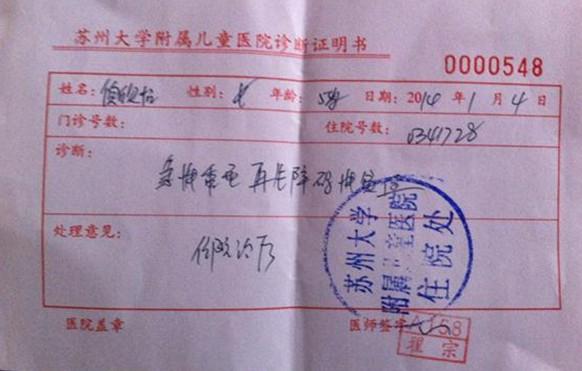 苏州大学附属儿童医院诊断证明书
0000548
姓名: 性别: 女 年龄: 5岁 日期: 2014年1月4日
门诊号数: 住院号数: 0341728
诊断:
急性重型再生障碍性贫血
处理意见:
住院治疗
苏州大学
附属儿童医院
住院处
医院盖章 医师签字
A158
翟宗